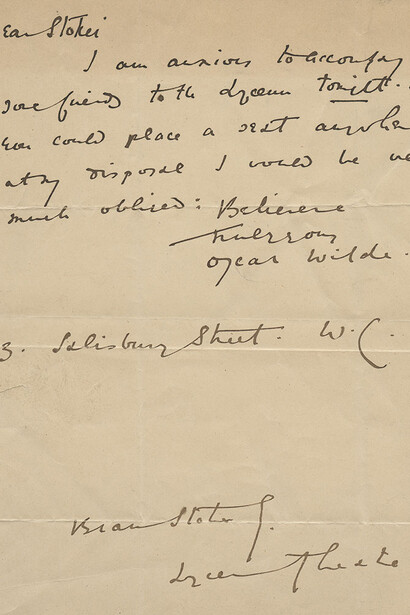 ear Stoker
I am anxious to accompany
some friends to the Lyceum tonight.
could place a seat anywhere
at my disposal I would be ve
much obliged: Believe me
truly yours
Oscar Wilde.
3. Salisbury Street. W.C.
Bram Stoker
Lyceum Theatre